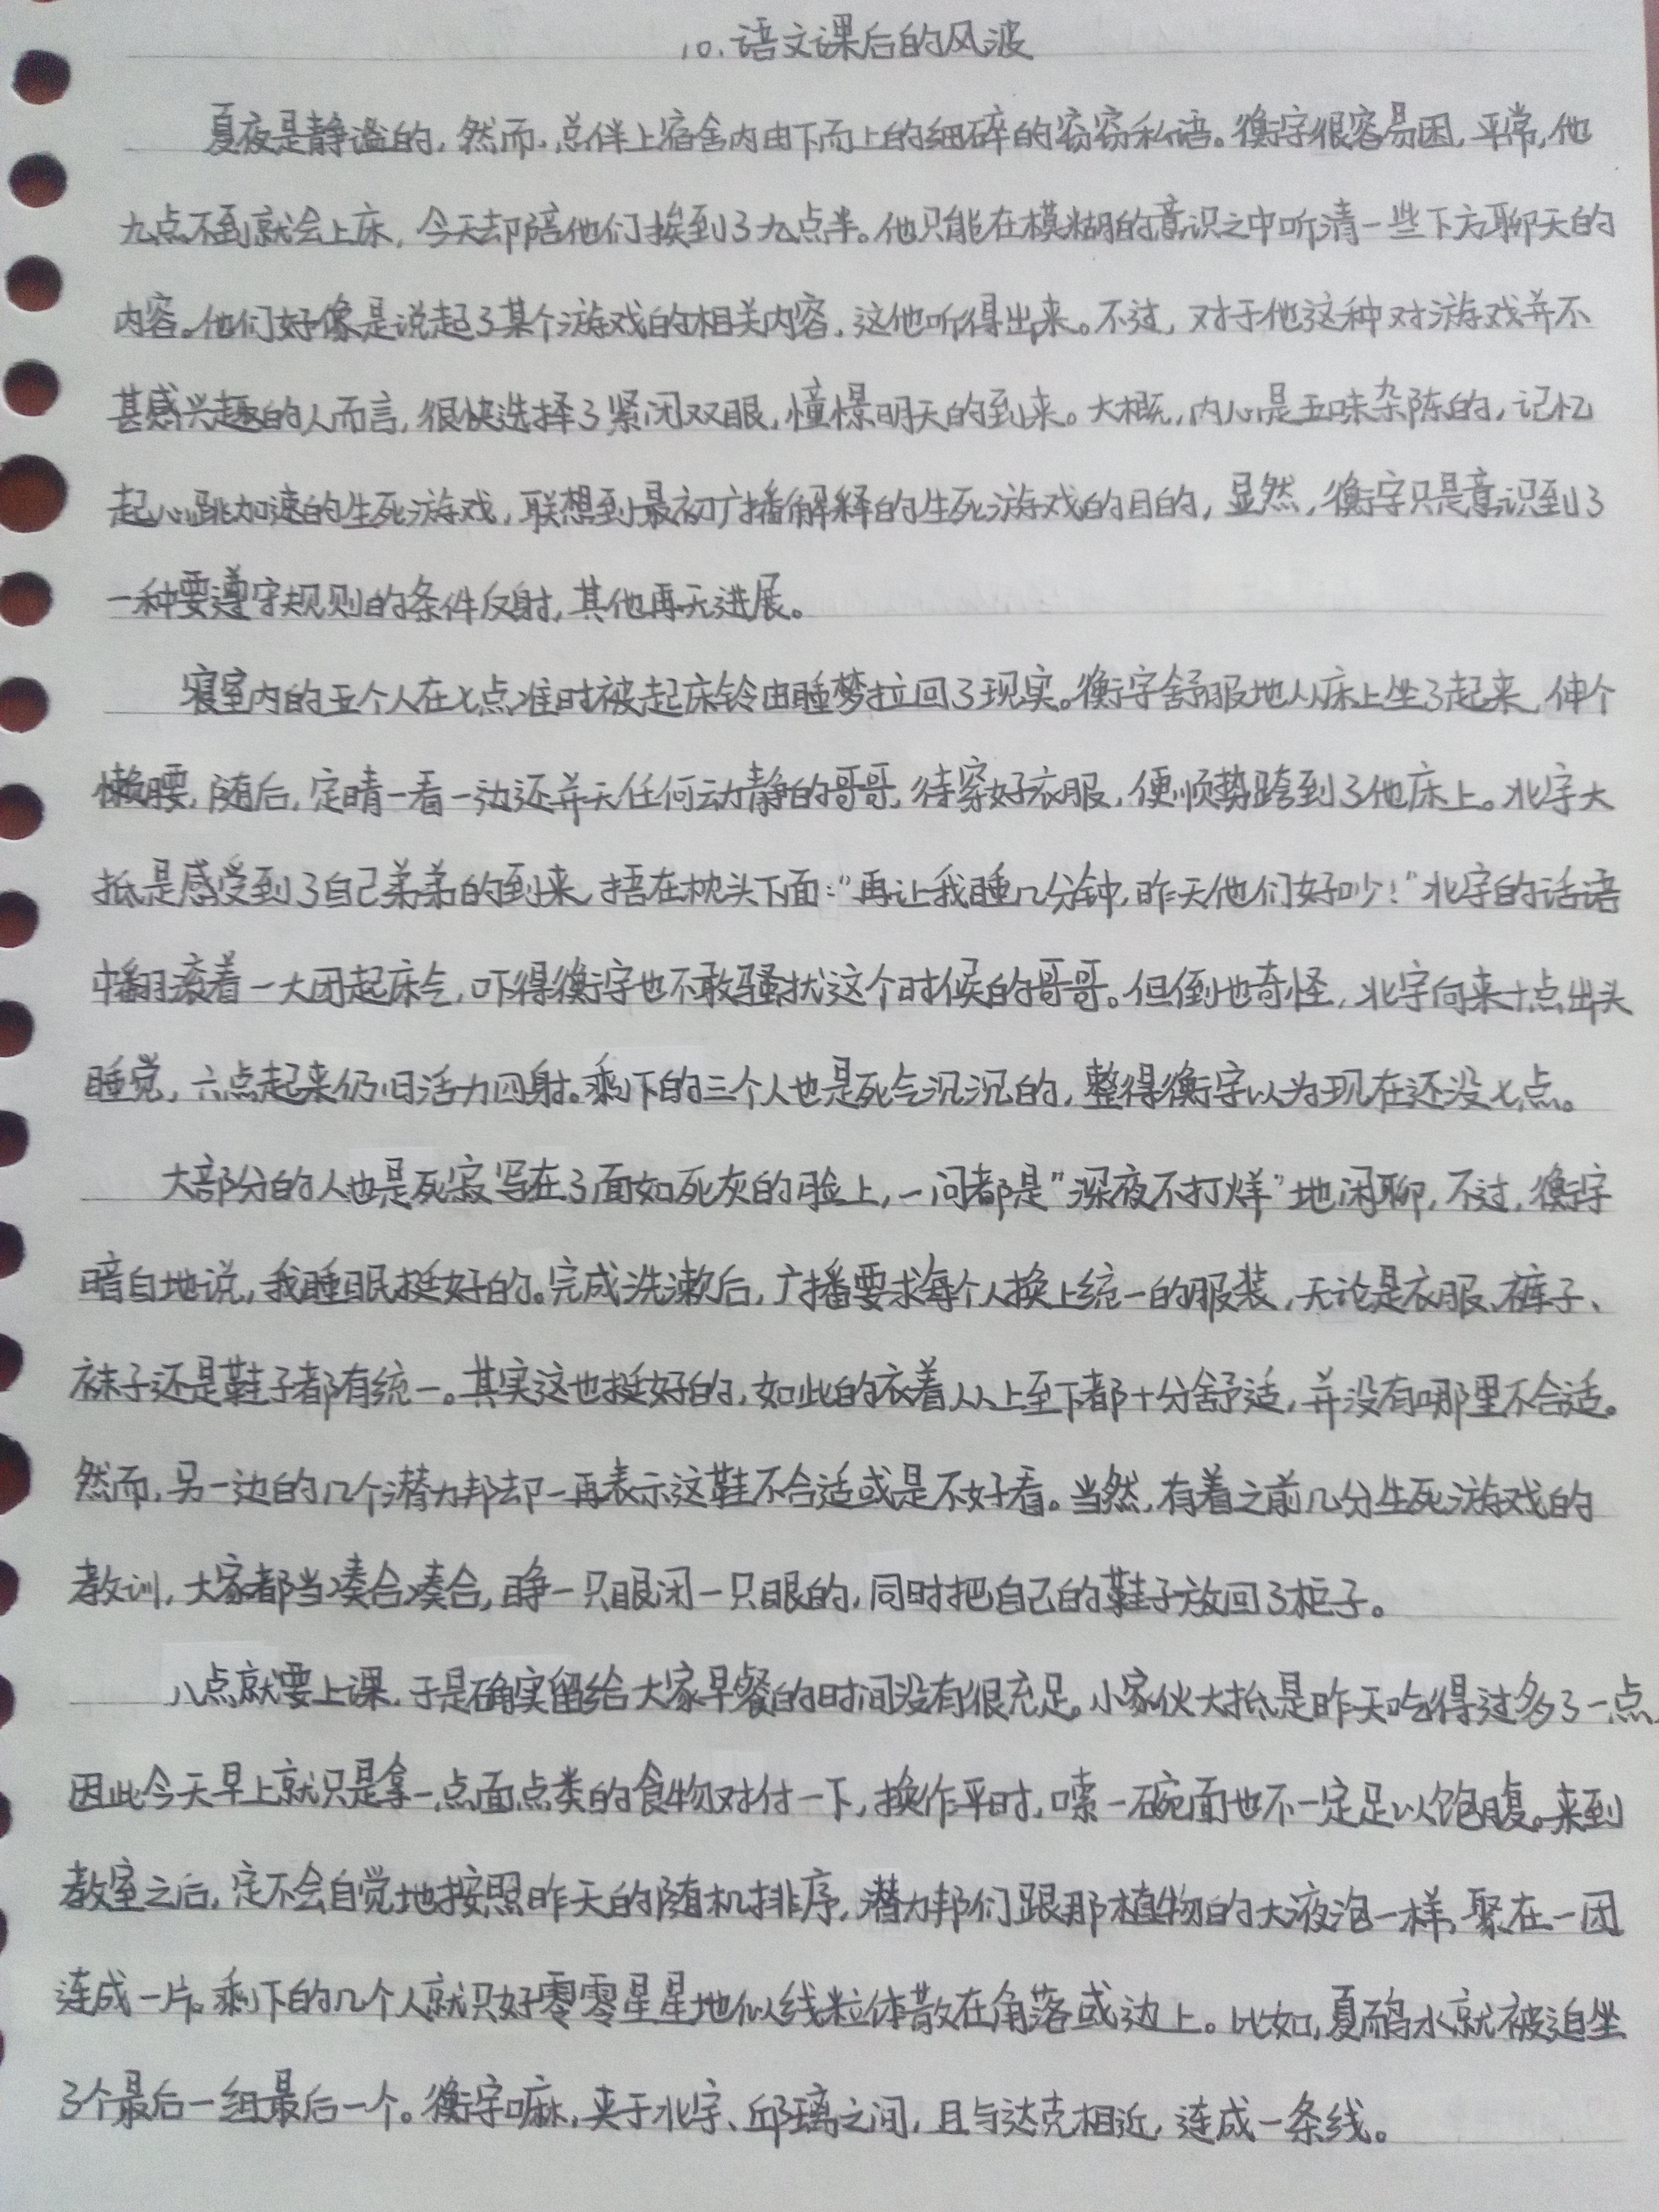 10.语文课后的风波
夏夜是静谧的,然而,总伴上宿舍内由下而上的细碎的窃窃私语。衡宇很容易困,平常,他
九点不到就会上床,今天却陪他们挨到了九点半。他只能在模糊的意识之中听清一些下方聊天的
内容。他们好像是说起了某个游戏的相关内容,这他听得出来。不过,对于他这种对游戏并不
甚感兴趣的人而言,很快选择了紧闭双眼,憧憬明天的到来。大概,内心是五味杂陈的,记忆
起心跳加速的生死游戏,联想到最初广播解释的生死游戏的目的,显然,衡宇只是意识到了
一种要遵守规则的条件反射,其他再无进展。
寝室内的五个人在七点准时被起床铃由睡梦拉回了现实。衡宇舒服地从床上坐了起来,伸个
懒腰,随后,定睛一看一边还并无任何动静的哥哥,待穿好衣服,便顺势跨到了他床上。北宇大
抵是感受到了自己弟弟的到来,捂在枕头下面:“再让我睡几分钟,昨天他们好吵!”北宇的话语
中翻滚着一大团起床气,吓得衡宇也不敢骚扰这个时候的哥哥。但倒也奇怪,北宇向来十点出头
睡觉,六点起来仍旧活力四射。剩下的三个人也是死气沉沉的,整得衡宇以为现在还没七点。
大部分的人也是死寂写在了面如死灰的脸上,一问都是“深夜不打烊”地闲聊,不过,衡宇
暗自地说,我睡眠挺好的。完成洗漱后,广播要求每个人换上统一的服装,无论是衣服、裤子、
袜子还是鞋子都有统一。其实这也挺好的,如此的衣着从上至下都十分舒适,并没有哪里不合适。
然而,另一边的几个潜力邦却一再表示这鞋不合适或是不好看。当然,有着之前几分生死游戏的
教训,大家都当凑合凑合,睁一只眼闭一只眼的,同时把自己的鞋子放回了柜子。
八点就要上课,于是确实留给大家早餐的时间没有很充足。小家伙大抵是昨天吃得过多了一点,
因此今天早上就只是拿一点面点类的食物对付一下,换作平时,嗦一碗面也不一定足以饱腹。来到
教室之后,定不会自觉地按照昨天的随机排序,潜力邦们跟那植物的大液泡一样,聚在一团
连成一片。剩下的几个人就只好零零星星地似线粒体散在角落或边上。比如,夏鸸水就被迫坐
了个最后一组最后一个。衡宇嘛,夹于北宇、邱璃之间,且与达克相近,连成一条线。